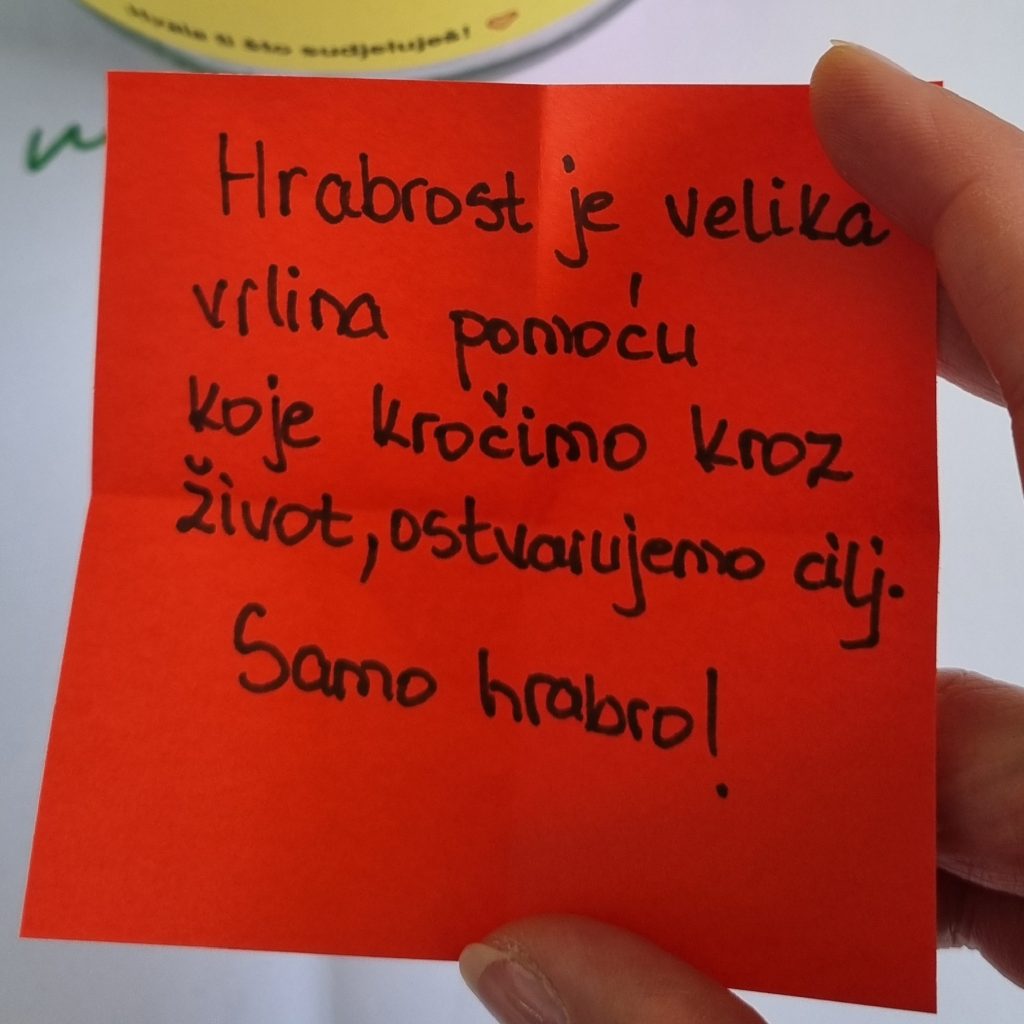 Hvala ti što sudjeluješ!
Hrabrost je velika
vrlina pomoću
koje kročimo kroz
život, ostvarujemo cilj.
Samo hrabro!